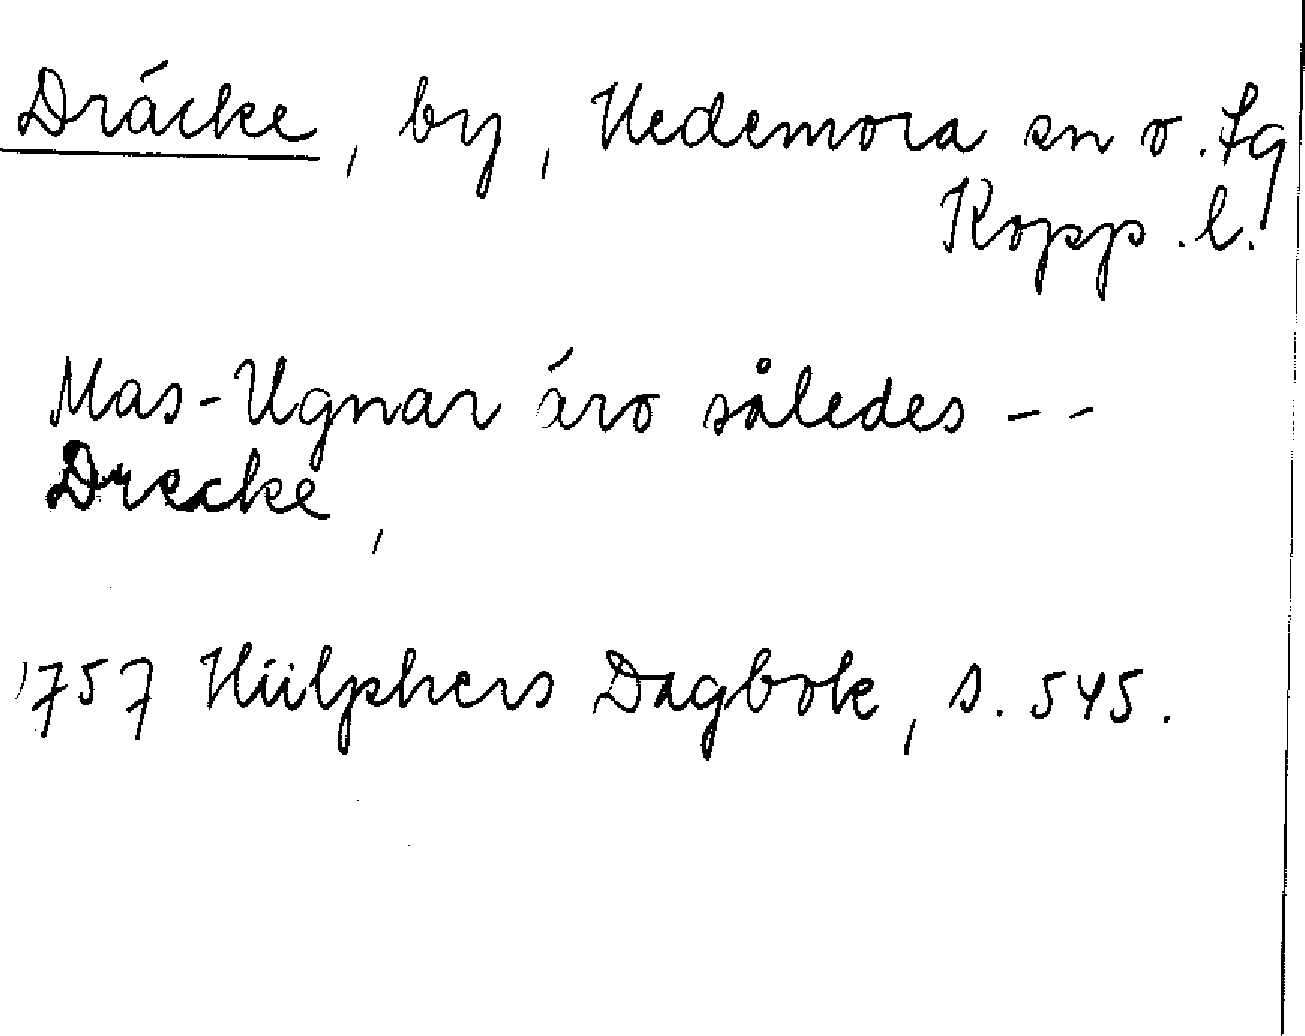 Dräcke, by, Hedemora sn o. tg
Kopp. l.
Mas-Ugnar äro således - -
Drecke,
1757 Hülphers Dagbok, s. 545.